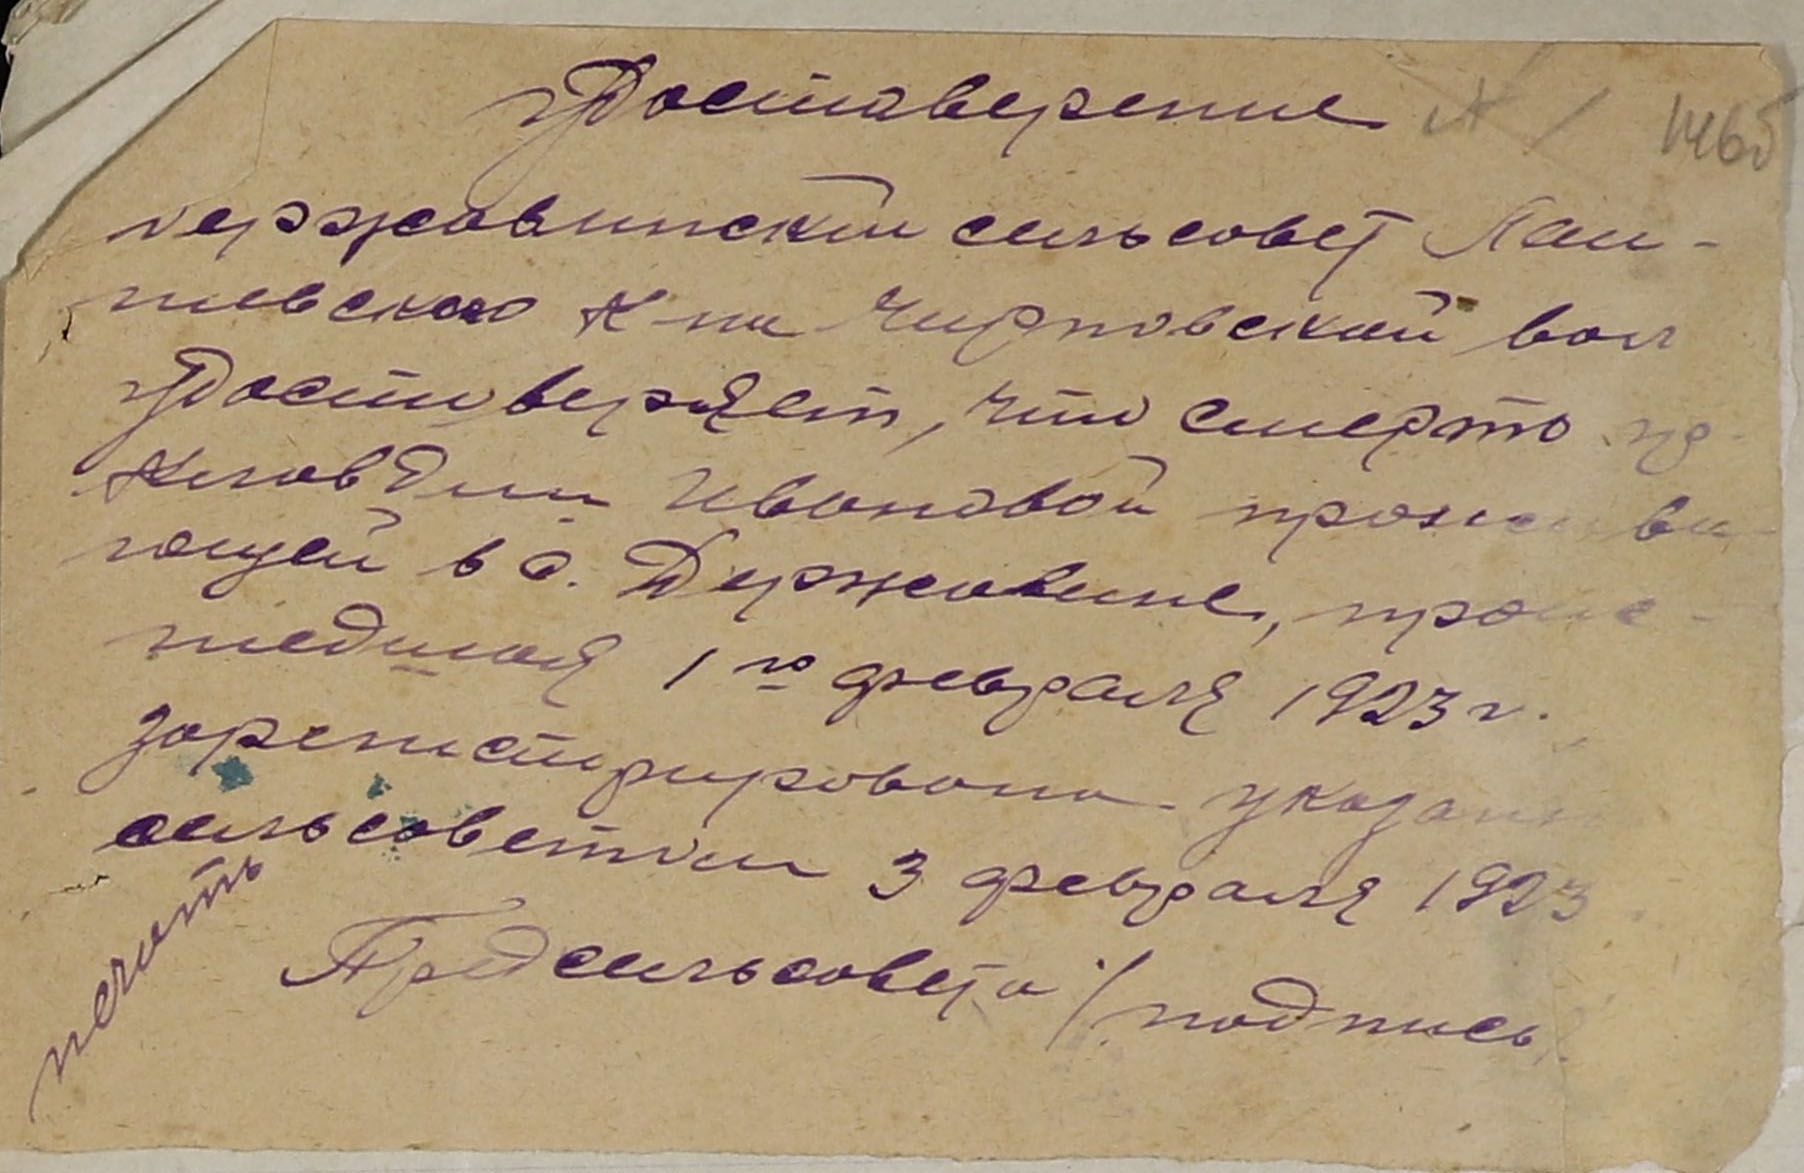 Удостоверение
№ / 146б
Державинский сельсовет Лаи-
шевского к-на Чирповской вол
удостоверяет, что смерть гр-
Клавдии Ивановой прожива
ющей в с. Державине, прои-
шедшая 1го февраля 1923 г.
зарегистрирована указан
сельсоветом 3 февраля 1923
Предсельсовета /подпись/
печать